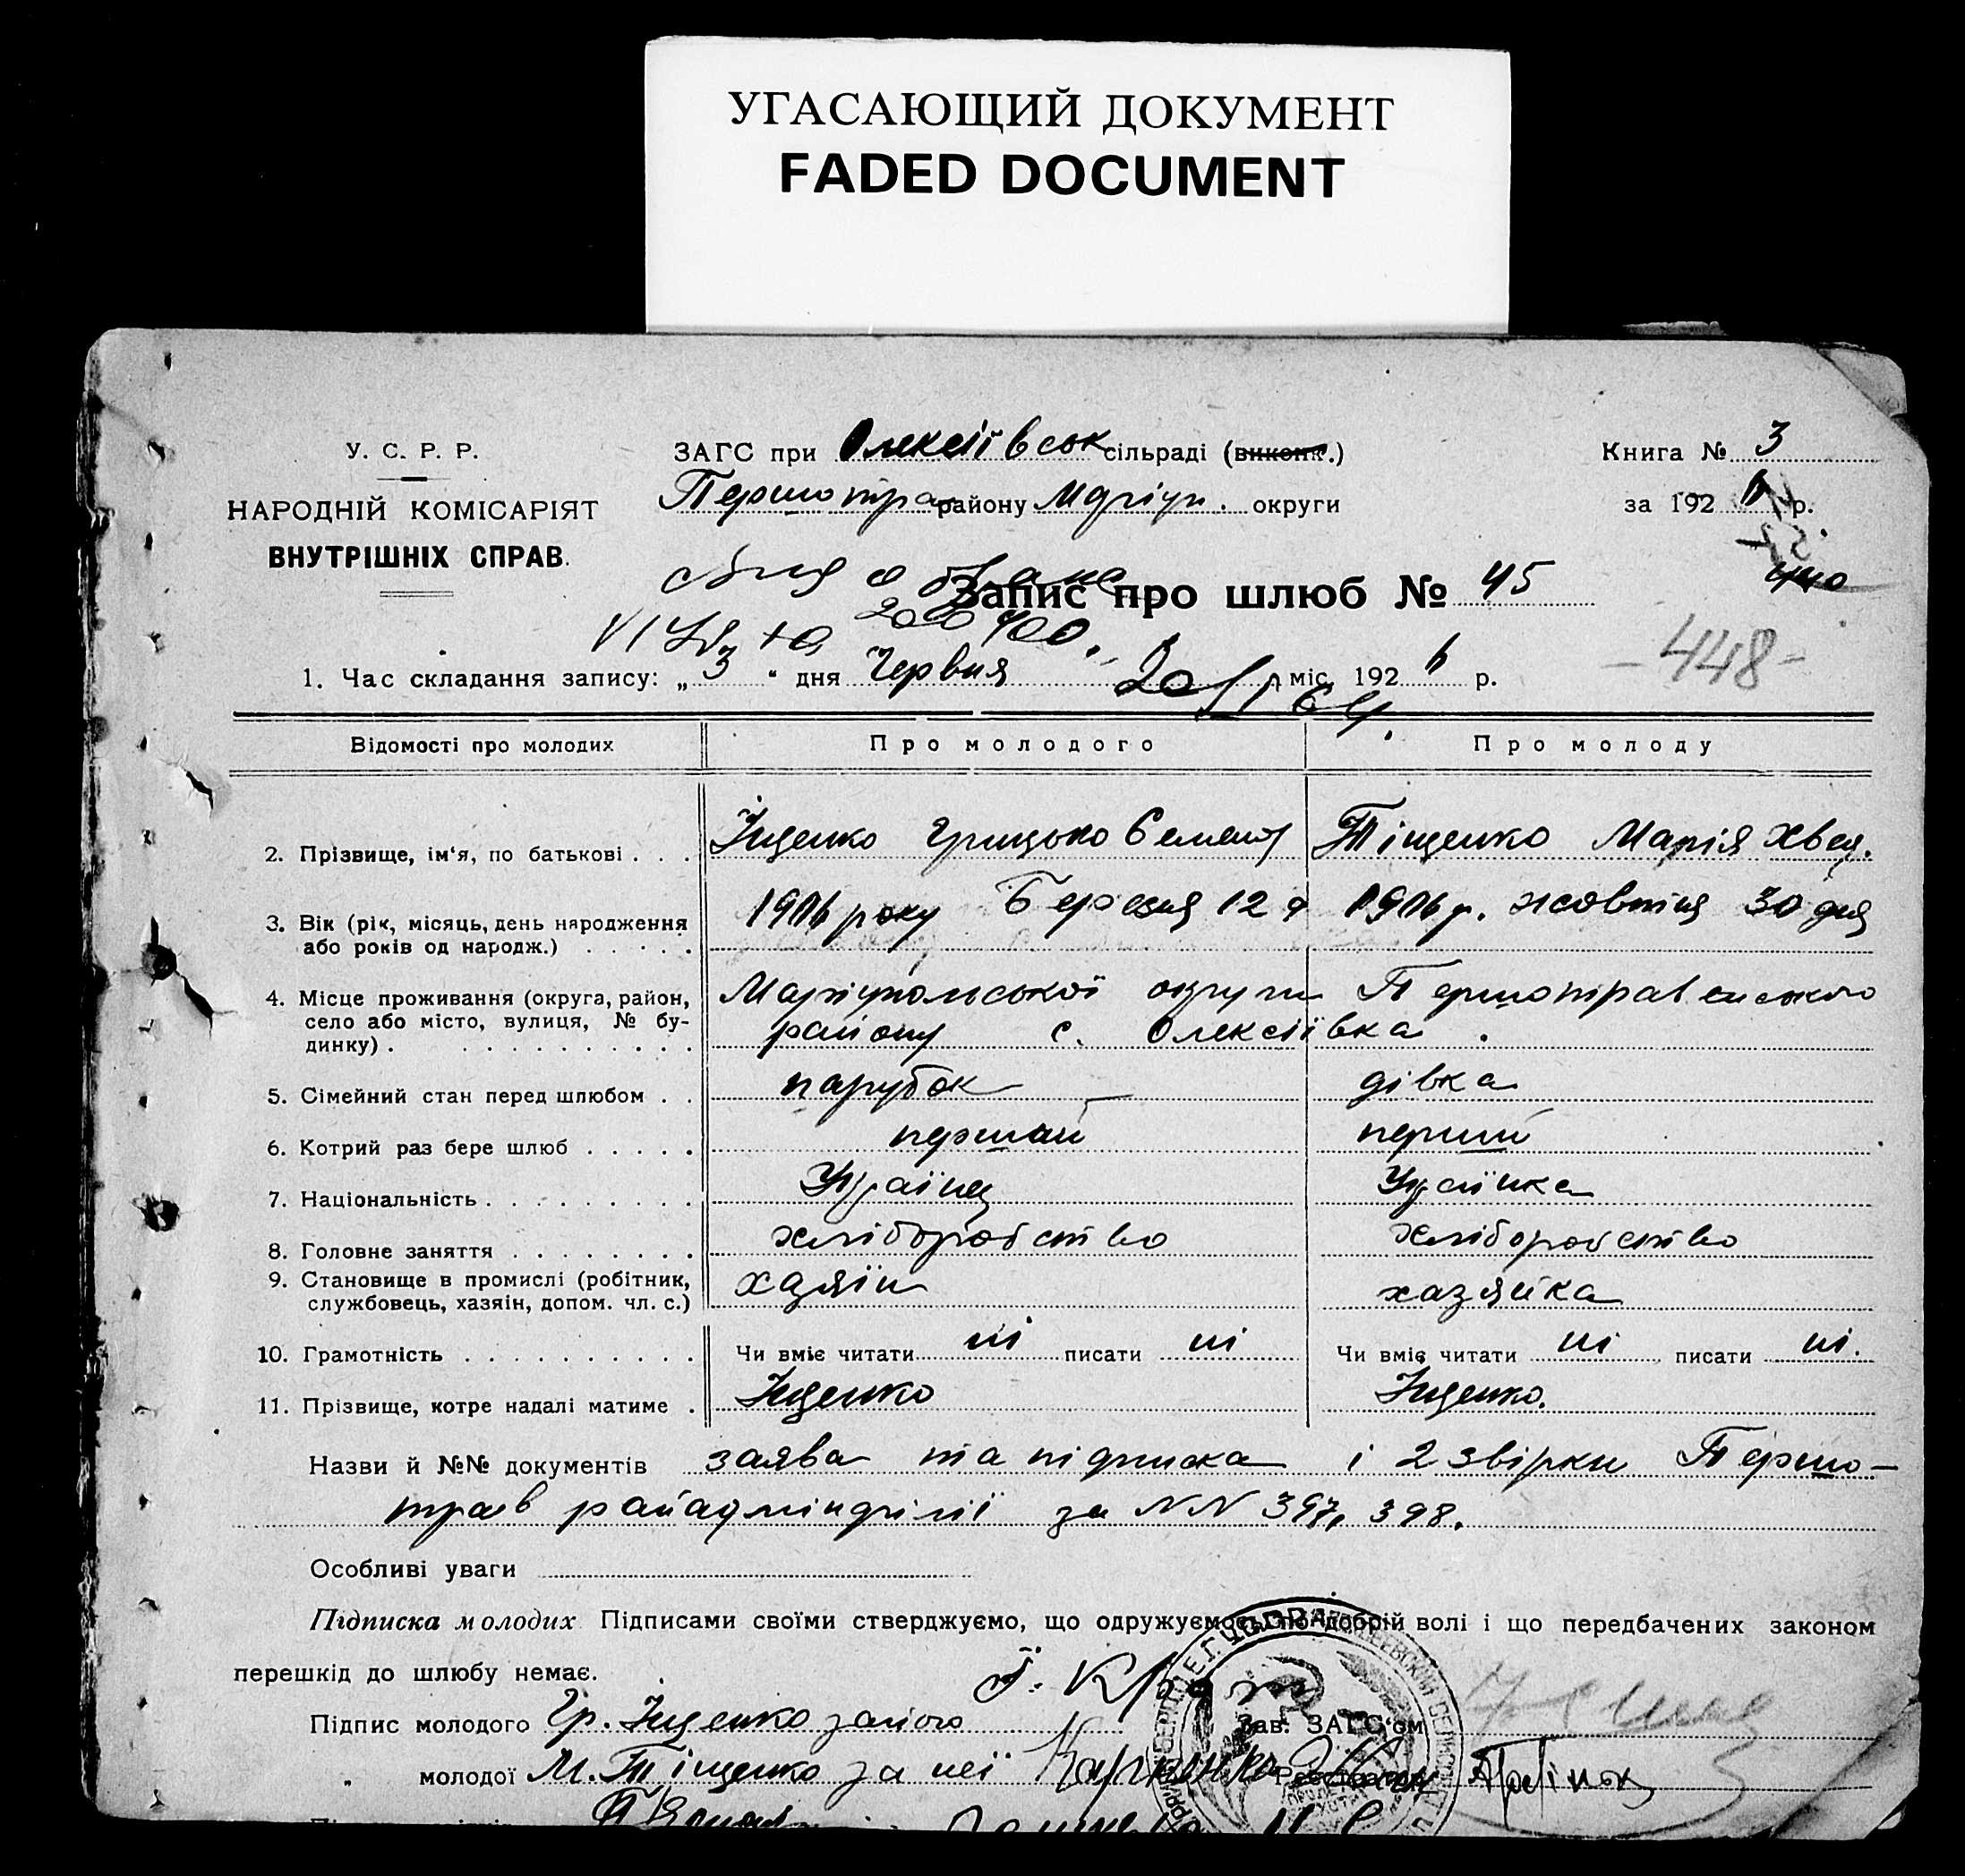 УГАСАЮЩИЙ ДОКУМЕНТ
FADED DOCUMENT
У. С. Р. Р.
НАРОДНІЙ КОМІСАРІЯТ
ВНУТРІШНІХ СПРАВ.
ЗАГС при Олексіївськ сільраді (викон.)
Першотра району Маріуп. округи
Книга № 3
за 1926 р.
440
Запис про шлюб № 45
-448-
1. Час складання запису: „3“ дня Червня міс. 1926 р.
Відомості про молодих Про молодого Про молоду
2. Прізвище, ім‘я, по батькові . . . Іщенко Грицько Семент Тіщенко Марія Хвед.
3. Вік (рік, місяць, день народження 1906 року Березня 12 д 1906 р. жовтня 30 дня
або років од народж.) . . . . .
4. Місце проживання (округа, район, Маріупольської округи Першотравенського
село або місто, вулиця, № бу- району с. Олексіївка.
динку) . . . . . . . . . . .
5. Сімейний стан перед шлюбом . . парубок дівка
6. Котрий раз бере шлюб . . . . . першай перший
7. Національність . . . . . . . . . Українец Українка
8. Головне заняття . . . . . . . . хліборобство хліборобство
9. Становище в промислі (робітник, хазяїн хазяйка
службовець, хазяін, допом. чл. с.)
10. Грамотність . . . . . . . . . . Чи вміє читати ні писати ні Чи вміє читати ні писати ні.
11. Прізвище, котре надалі матиме . Іщенко Іщенко.
Назви й №№ документів заява та підписка і 2 звірки Першо-
трав райадмінділії за NN 397, 398.
Особливі уваги
Підписка молодих Підписами своїми стверджуємо, що одружуємось по добрій волі і що передбачених законом
перешкід до шлюбу немає.
Підпис молодого Гр. Іщенко за його Зав. ЗАГС‘ом
„ молодої М. Тіщенко за неї